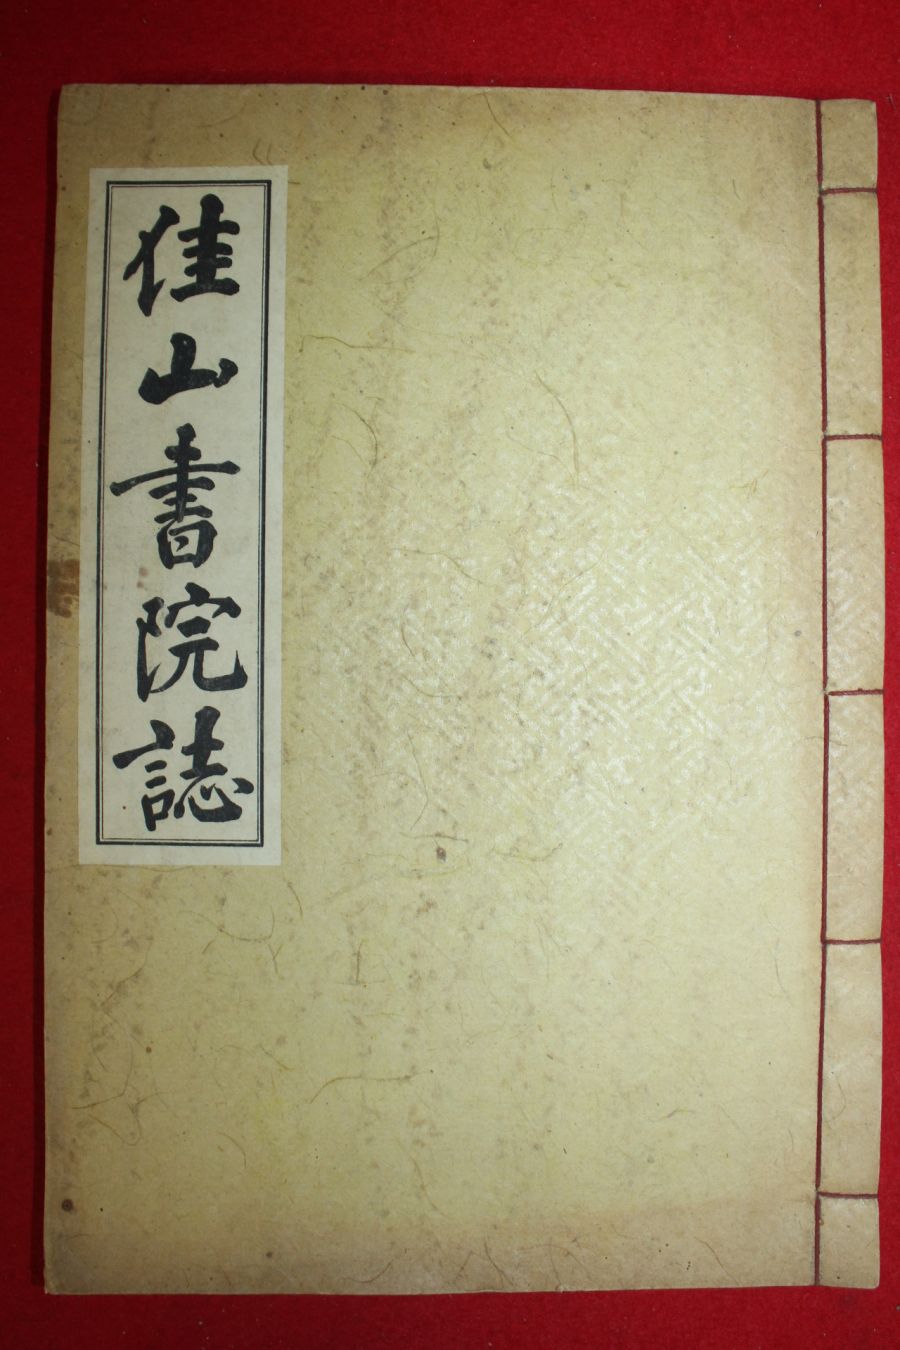 佳山書院誌